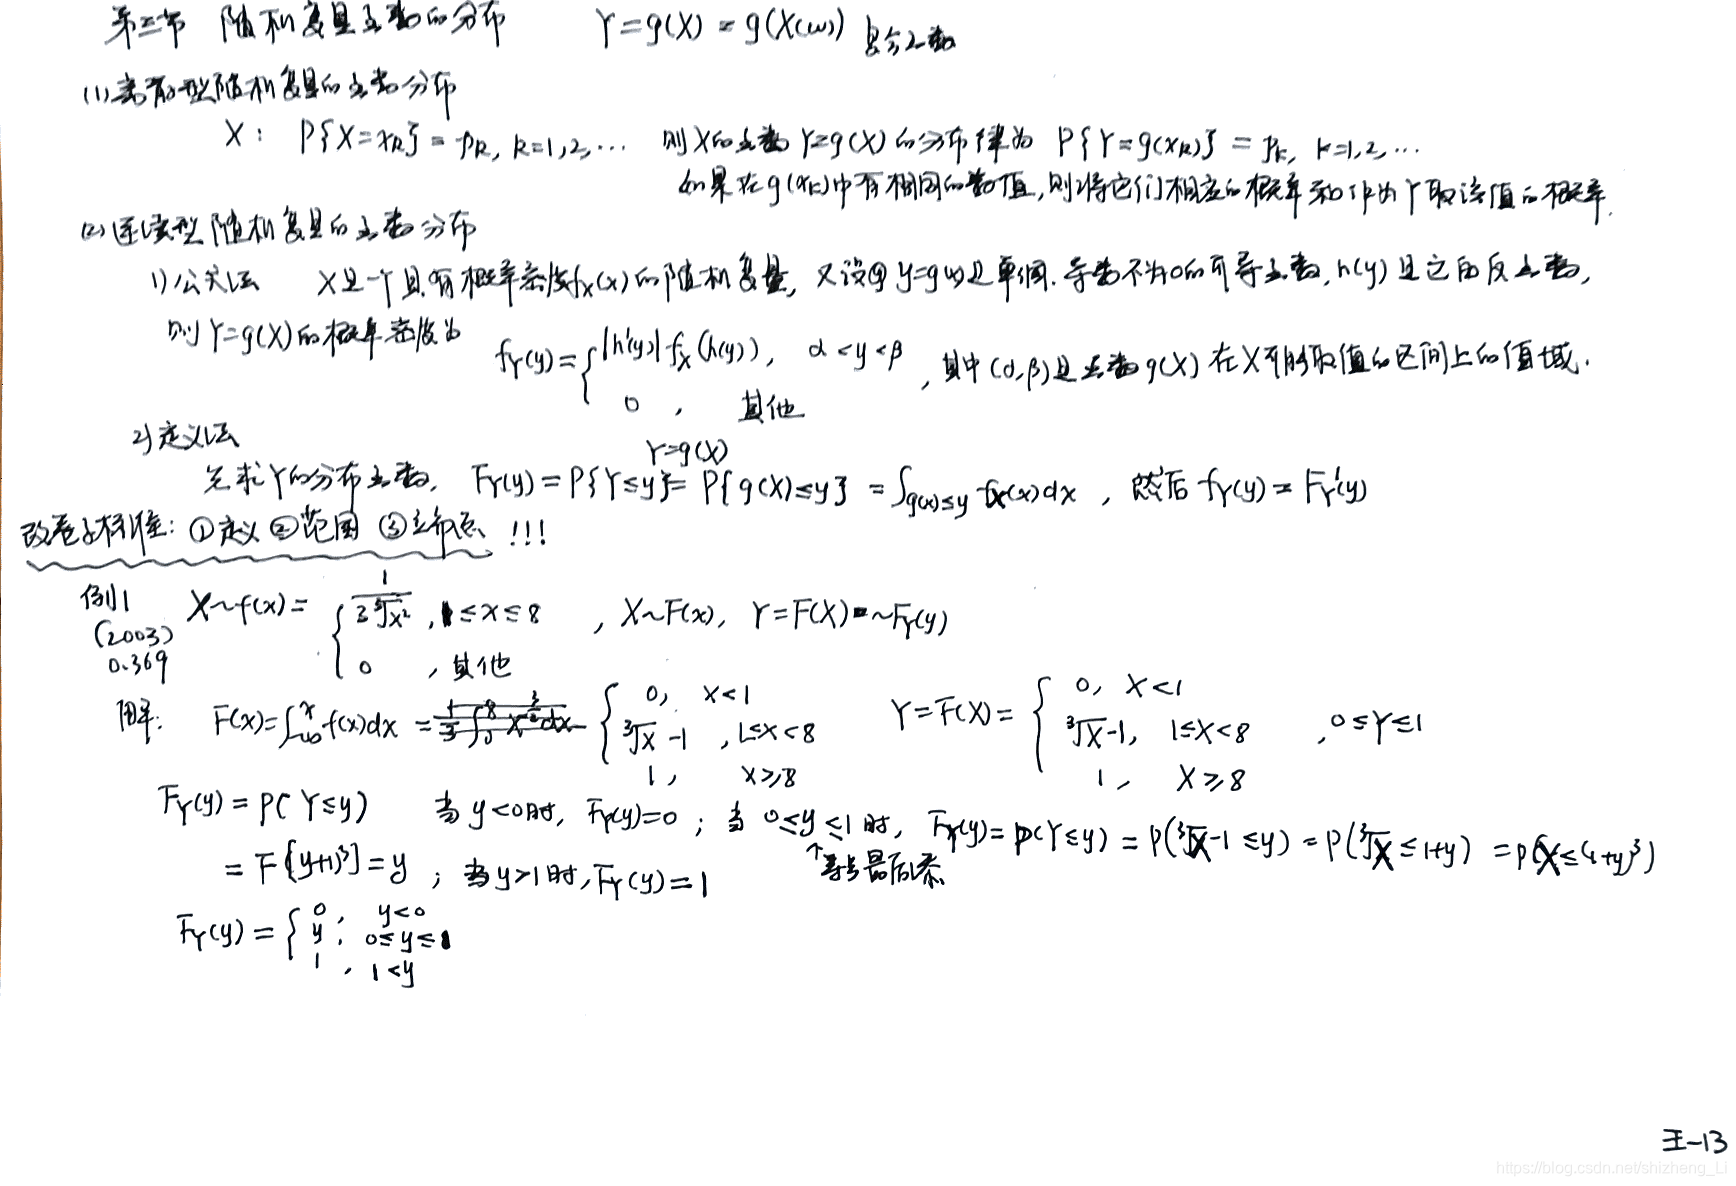 第三节 随机变量函数的分布 Y=g(X)=g(X(ω)) 复合函数
(1)离散型随机变量的函数分布
X: P{X=x_k}=p_k, k=1,2,… 则X的函数Y=g(X)的分布律为 P{Y=g(x_k)}=p_k, k=1,2,…
如果在g(x_k)中有相同的数值,则将它们相应的概率和作为Y取该值的概率.
(2)连续型随机变量的函数分布
1)公式法 X是一个具有概率密度f_X(x)的随机变量,又设y=g(x)是单调.导数不为0的可导函数,h(y)是它的反函数,
则Y=g(X)的概率密度为 f_Y(y)={|h'(y)|f_X(h(y)), α<y<β ,其中(α,β)是函数g(X)在X可能取值的区间上的值域.
0 , 其他
2)定义法
Y=g(X)
先求Y的分布函数, F_Y(y)=P{Y≤y}=P{g(X)≤y}=∫_{g(x)≤y} f_X(x)dx , 然后 f_Y(y)=F_Y'(y)
改卷子标准:①定义②范围③分布点 !!!
例1 X~f(x)={1/(3∛x²), 1≤x≤8 , X~F(x), Y=F(X)~F_Y(y)
(2003)
0.369 0 ,其他
解: F(x)=∫_{-∞}^{x} f(x)dx = {0, x<1 Y=F(X)={0, X<1
∛x-1 ,1≤x<8 ∛X-1, 1≤X<8 ,0≤Y≤1
1, x≥8 1, X≥8
F_Y(y)=P(Y≤y) 当y<0时, F_Y(y)=0 ; 当0≤y≤1时, F_Y(y)=P(Y≤y)=P(∛X-1≤y)=P(∛X≤1+y)=P(X≤(1+y)³)
=F[(y+1)³]=y ; 当y>1时,F_Y(y)=1 ↑等号最后添
F_Y(y)={0, y<0
y, 0≤y≤1
1, 1<y
王-13
https://blog.csdn.net/shizheng_Li